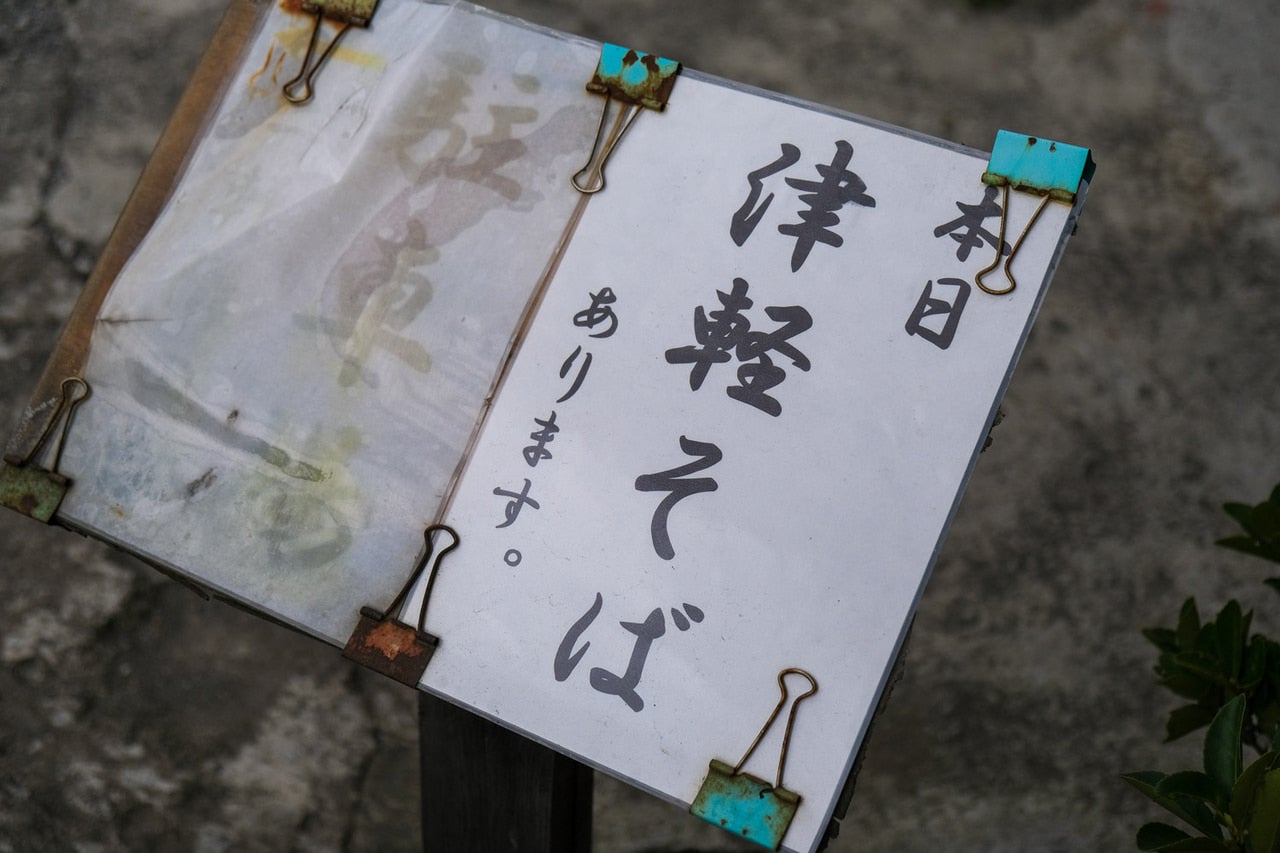 本日
津軽そば
あります。
駐車